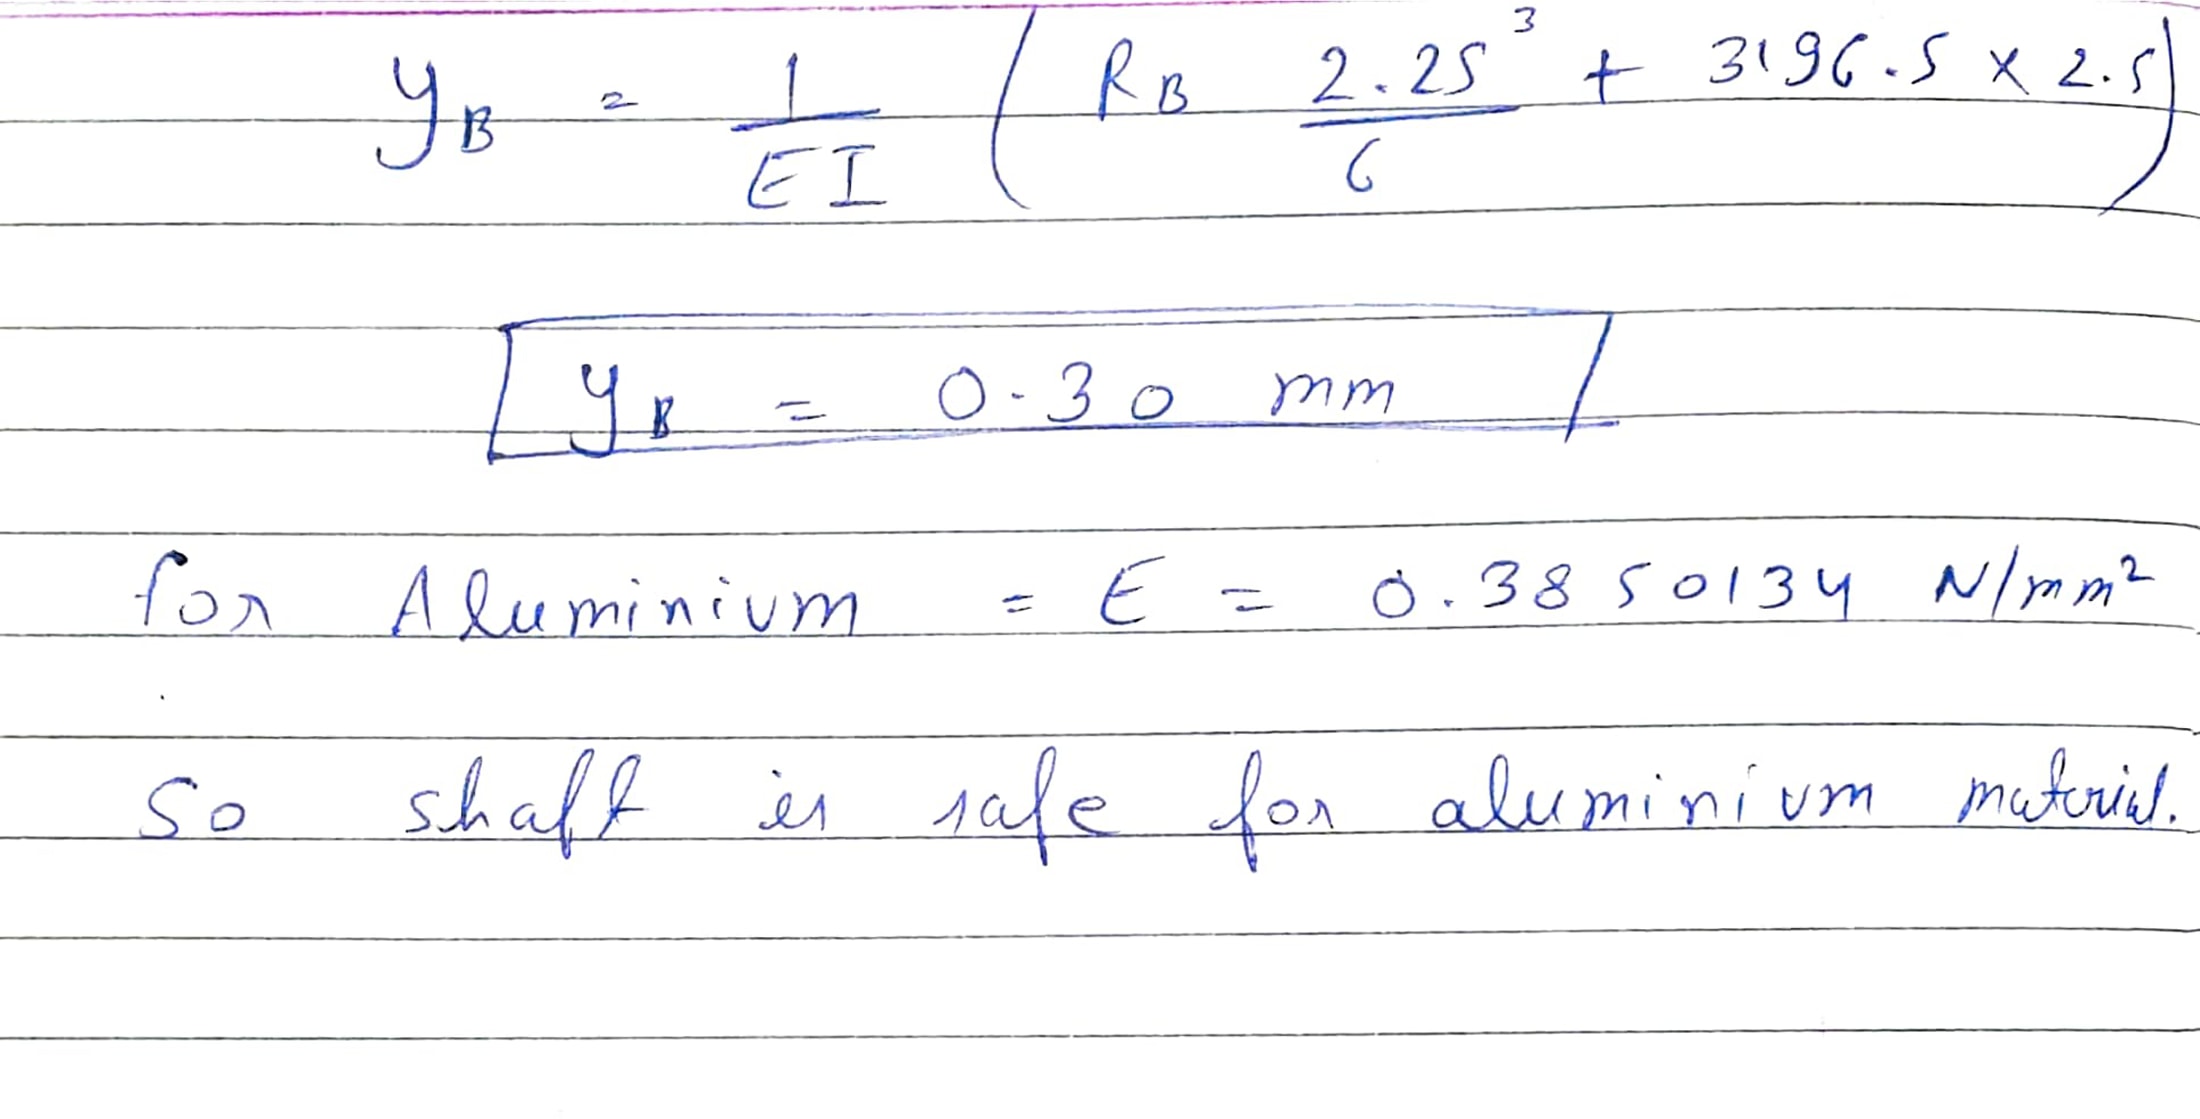 y_B = 1/EI ( R_B 2.25³/6 + 3196.5 × 2.5 )
y_B = 0.30 mm
for Aluminium = E = 0.3850134 N/mm²
so shaft is safe for aluminium material.